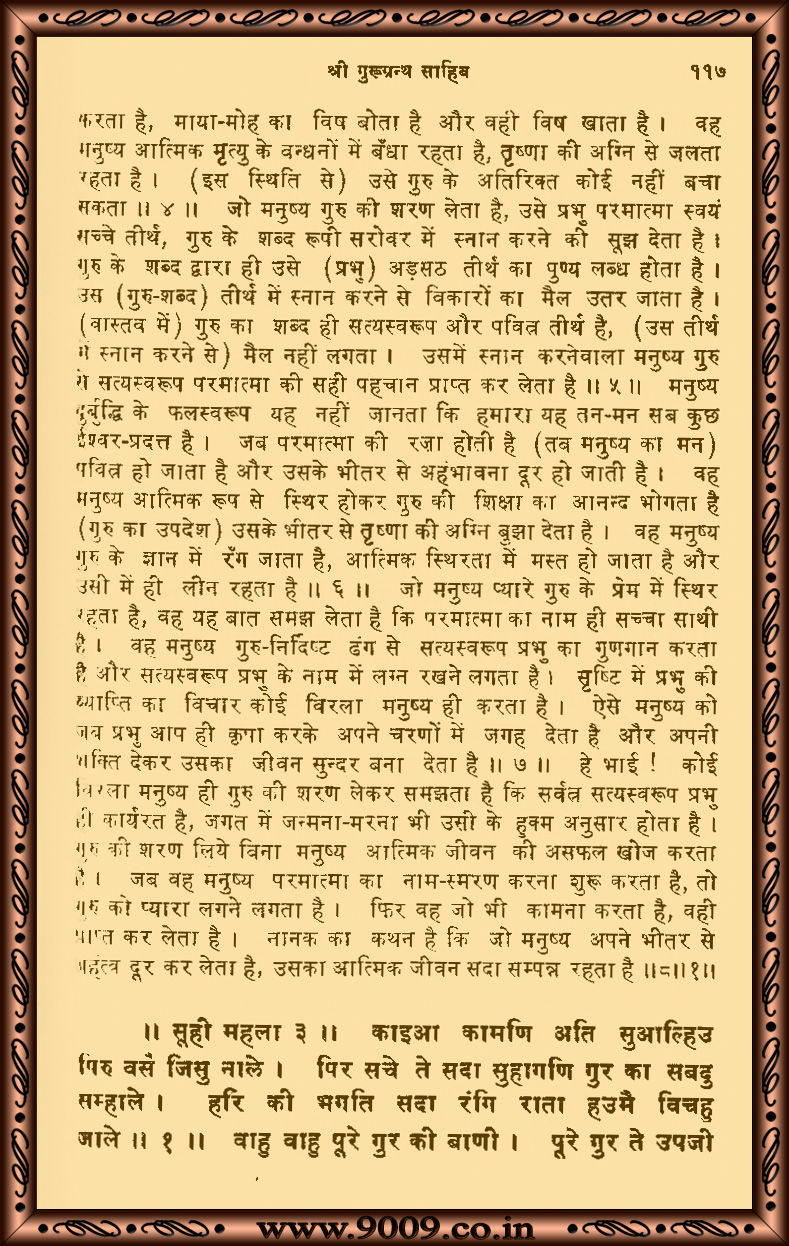 श्री गुरूग्रन्थ साहिब ११७
करता है, माया-मोह का विष बोता है और वही विष खाता है । वह
मनुष्य आत्मिक मृत्यु के बन्धनों में बँधा रहता है, तृष्णा की अग्नि से जलता
रहता है । (इस स्थिति से) उसे गुरु के अतिरिक्त कोई नहीं बचा
सकता ॥ ४ ॥ जो मनुष्य गुरु की शरण लेता है, उसे प्रभु परमात्मा स्वयं
सच्चे तीर्थ, गुरु के शब्द रूपी सरोवर में स्नान करने की सूझ देता है ।
गुरु के शब्द द्वारा ही उसे (प्रभु) अड़सठ तीर्थ का पुण्य लब्ध होता है ।
उस (गुरु-शब्द) तीर्थ में स्नान करने से विकारों का मैल उतर जाता है ।
(वास्तव में) गुरु का शब्द ही सत्यस्वरूप और पवित्न तीर्थ है, (उस तीर्थ
में स्नान करने से) मैल नहीं लगता । उसमें स्नान करनेवाला मनुष्य गुरु
से सत्यस्वरूप परमात्मा की सही पहचान प्राप्त कर लेता है ॥ ५ ॥ मनुष्य
दुर्बुद्धि के फलस्वरूप यह नहीं जानता कि हमारा यह तन-मन सब कुछ
ईश्वर-प्रदत्त है । जब परमात्मा की रज़ा होती है (तब मनुष्य का मन)
पवित्न हो जाता है और उसके भीतर से अहंभावना दूर हो जाती है । वह
मनुष्य आत्मिक रूप से स्थिर होकर गुरु की शिक्षा का आनन्द भोगता है
(गुरु का उपदेश) उसके भीतर से तृष्णा की अग्नि बुझा देता है । वह मनुष्य
गुरु के ज्ञान में रँग जाता है, आत्मिक स्थिरता में मस्त हो जाता है और
उसी में ही लीन रहता है ॥ ६ ॥ जो मनुष्य प्यारे गुरु के प्रेम में स्थिर
रहता है, वह यह बात समझ लेता है कि परमात्मा का नाम ही सच्चा साथी
है । वह मनुष्य गुरु-निर्दिष्ट ढंग से सत्यस्वरूप प्रभु का गुणगान करता
है और सत्यस्वरूप प्रभु के नाम में लग्न रखने लगता है । सृष्टि में प्रभु की
व्याप्ति का विचार कोई विरला मनुष्य ही करता है । ऐसे मनुष्य को
जब प्रभु आप ही कृपा करके अपने चरणों में जगह देता है और अपनी
भक्ति देकर उसका जीवन सुन्दर बना देता है ॥ ७ ॥ हे भाई ! कोई
विरला मनुष्य ही गुरु की शरण लेकर समझता है कि सर्वत्न सत्यस्वरूप प्रभु
ही कार्यरत है, जगत में जन्मना-मरना भी उसी के हुक्म अनुसार होता है ।
गुरु की शरण लिये बिना मनुष्य आत्मिक जीवन की असफल खोज करता
है । जब वह मनुष्य परमात्मा का नाम-स्मरण करना शुरू करता है, तो
गुरु को प्यारा लगने लगता है । फिर वह जो भी कामना करता है, वही
प्राप्त कर लेता है । नानक का कथन है कि जो मनुष्य अपने भीतर से
अहंत्व दूर कर लेता है, उसका आत्मिक जीवन सदा सम्पन्न रहता है ॥८॥१॥
॥ सूही महला ३ ॥ काइआ कामणि अति सुआल्हिउ
पिरु वसै जिसु नाले । पिर सचे ते सदा सुहागणि गुर का सबदु
सम्हाले । हरि की भगति सदा रंगि राता हउमै विचहु
जाले ॥ १ ॥ वाहु वाहु पूरे गुर की बाणी । पूरे गुर ते उपजी
www.9009.co.in